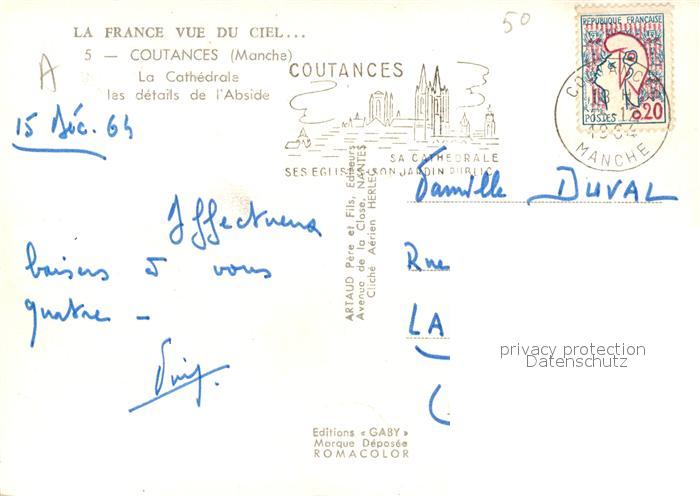 LA FRANCE VUE DU CIEL...
5 — COUTANCES (Manche)
La Cathédrale
les détails de l'Abside
A
50
15 Déc. 64
Affectueux
baisers à vous
quatre —
COUTANCES
SA CATHEDRALE
SES EGLISES - SON JARDIN PUBLIC
REPUBLIQUE FRANÇAISE
POSTES 0,20
COUTANCES
18 H
1964
MANCHE
ARTAUD Père et Fils, Editeurs
Avenue de la Close, NANTES
Cliché Aérien HERLEC
Famille DUVAL
Rue
LA
privacy protection
Datenschutz
Editions « GABY »
Marque Déposée
ROMACOLOR